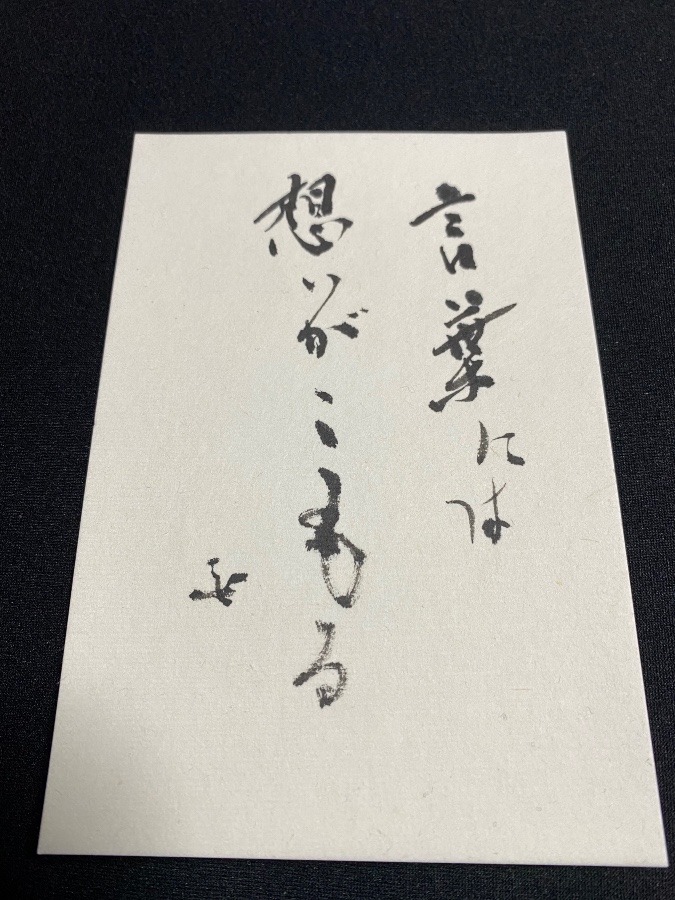 言葉には
想いがこもる